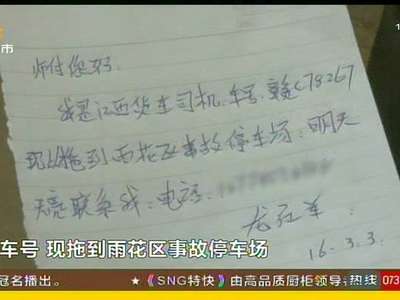 市
师付您好:
我是江西货车司机.车号.赣C78267
现拖到雨花区事故停车场:明天
联系我:电话
16.3.3.
车号 现拖到雨花区事故停车场
冠名播出。 ★《SNG特快》由高品质厨柜领导 热线 073